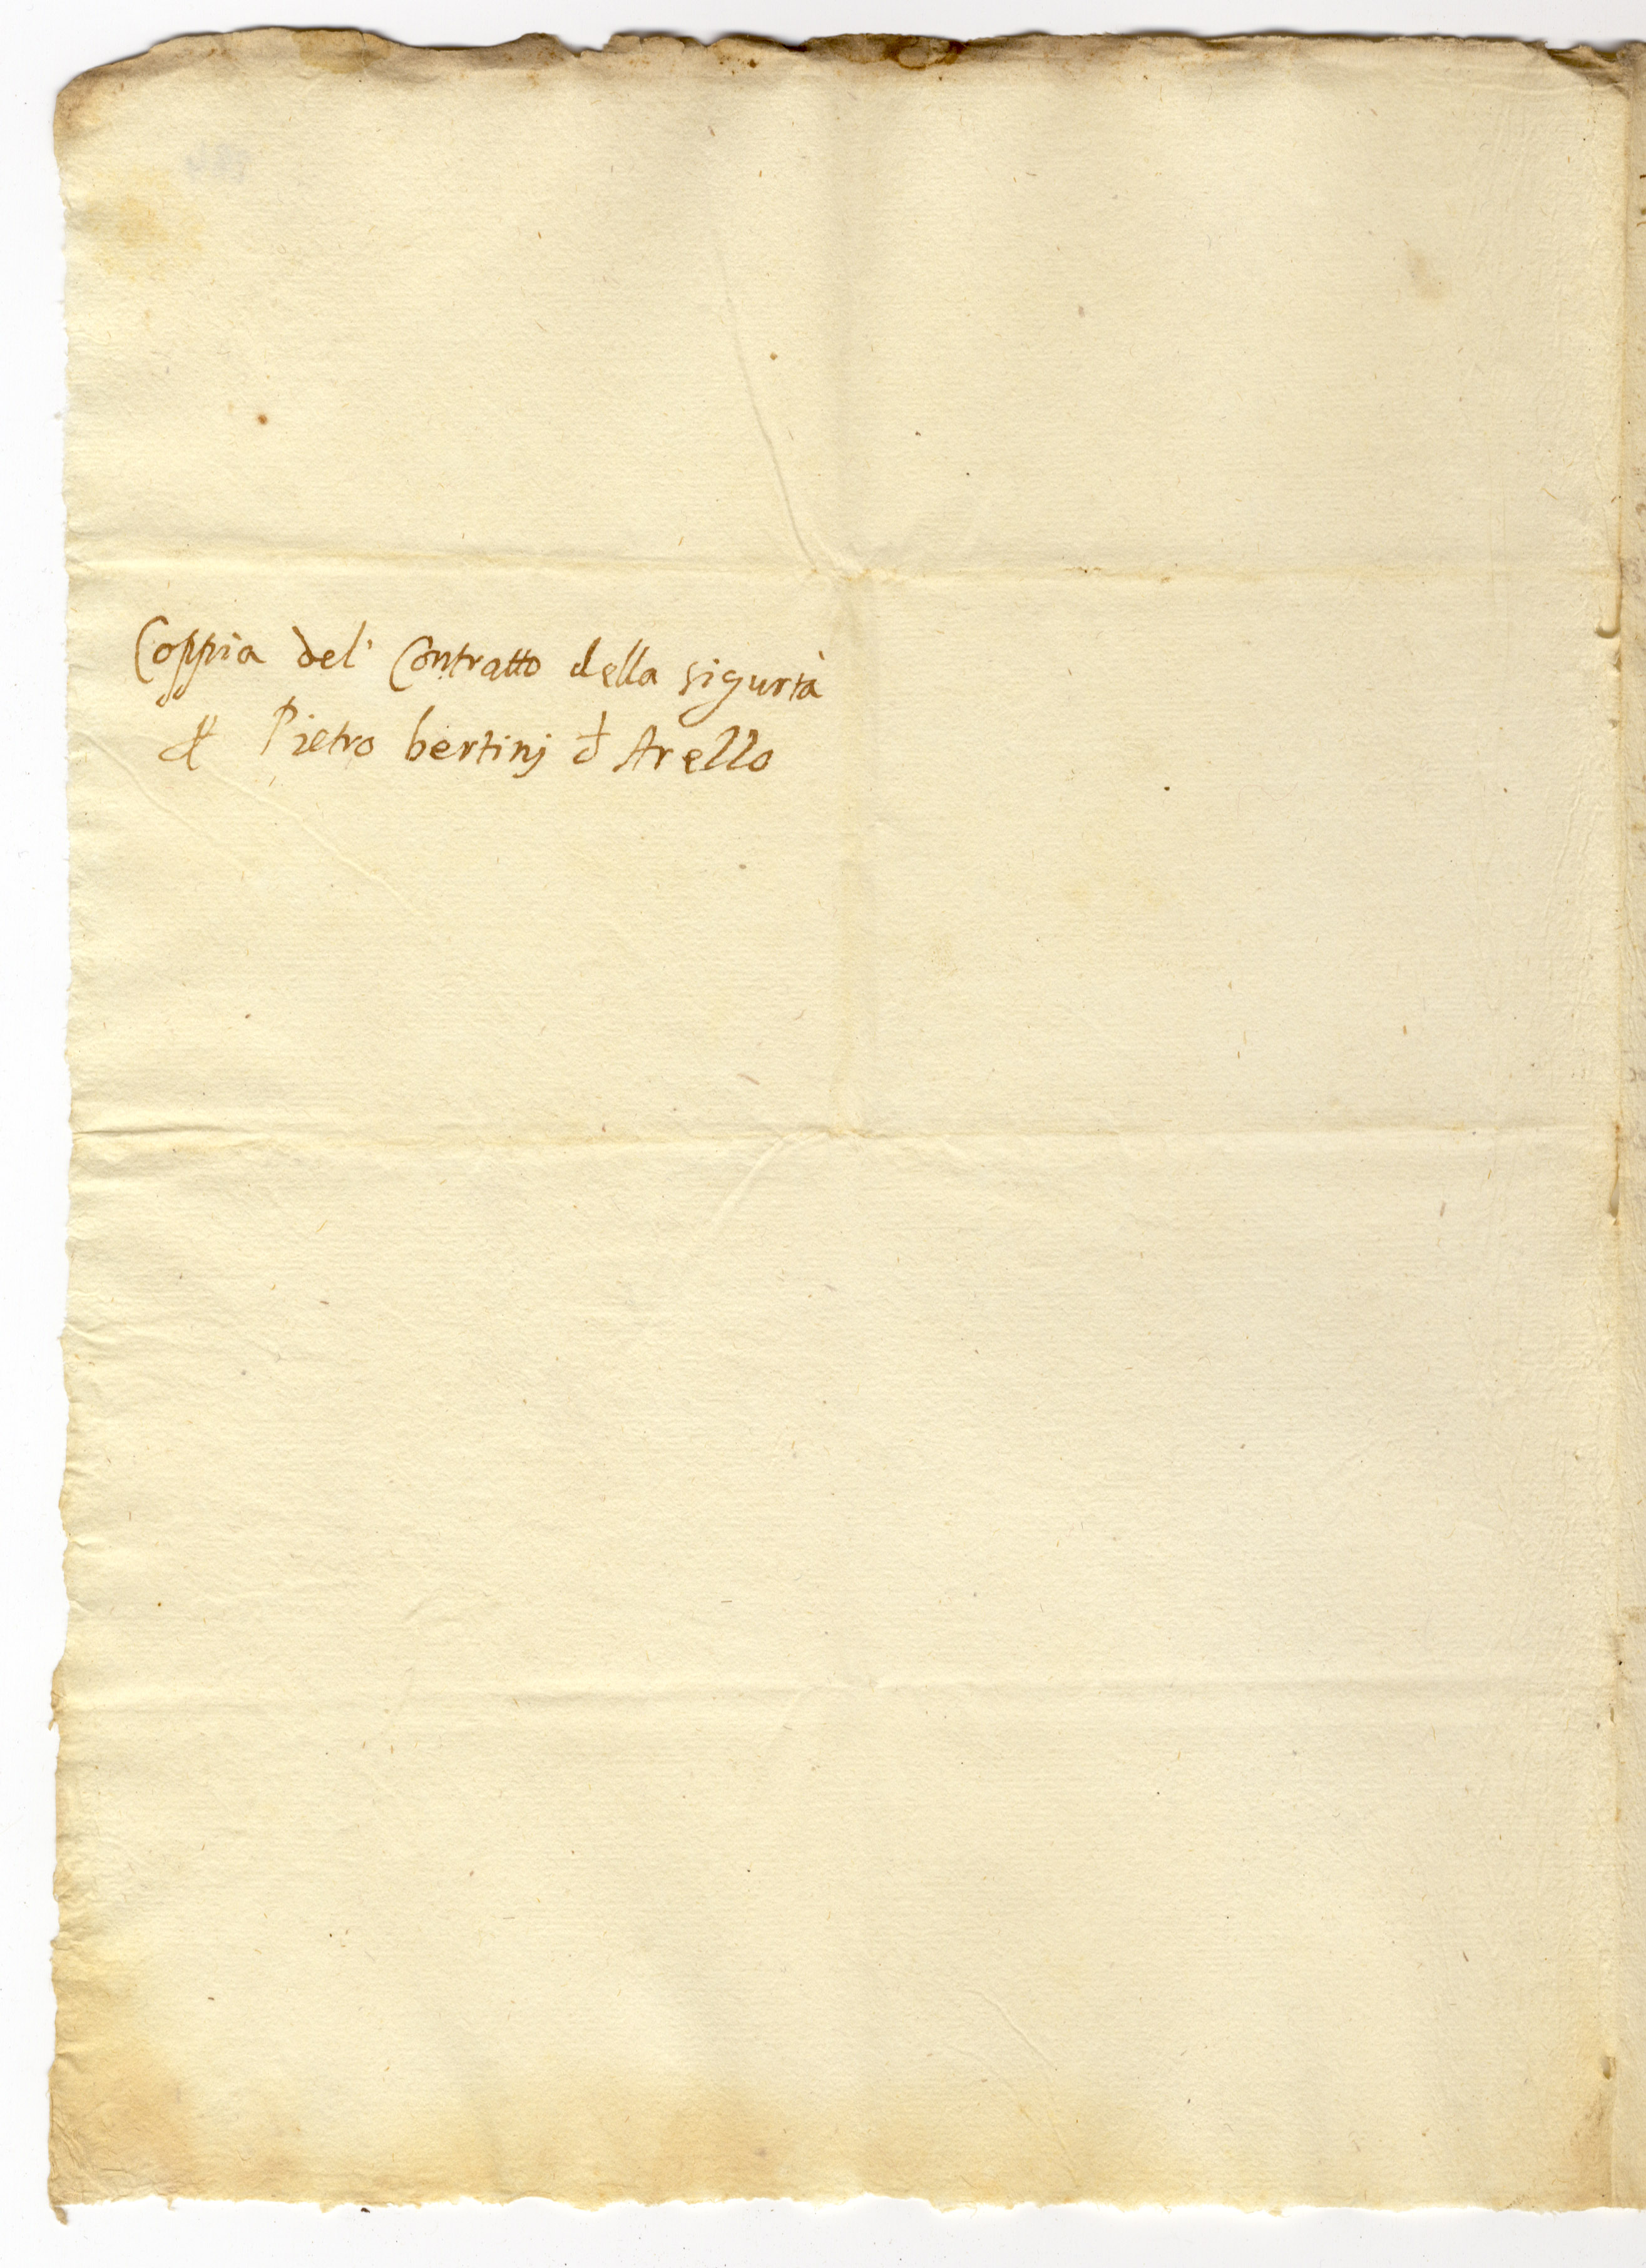 Coppia del' Contratto della sigurtà
di Pietro bertinj d Arello